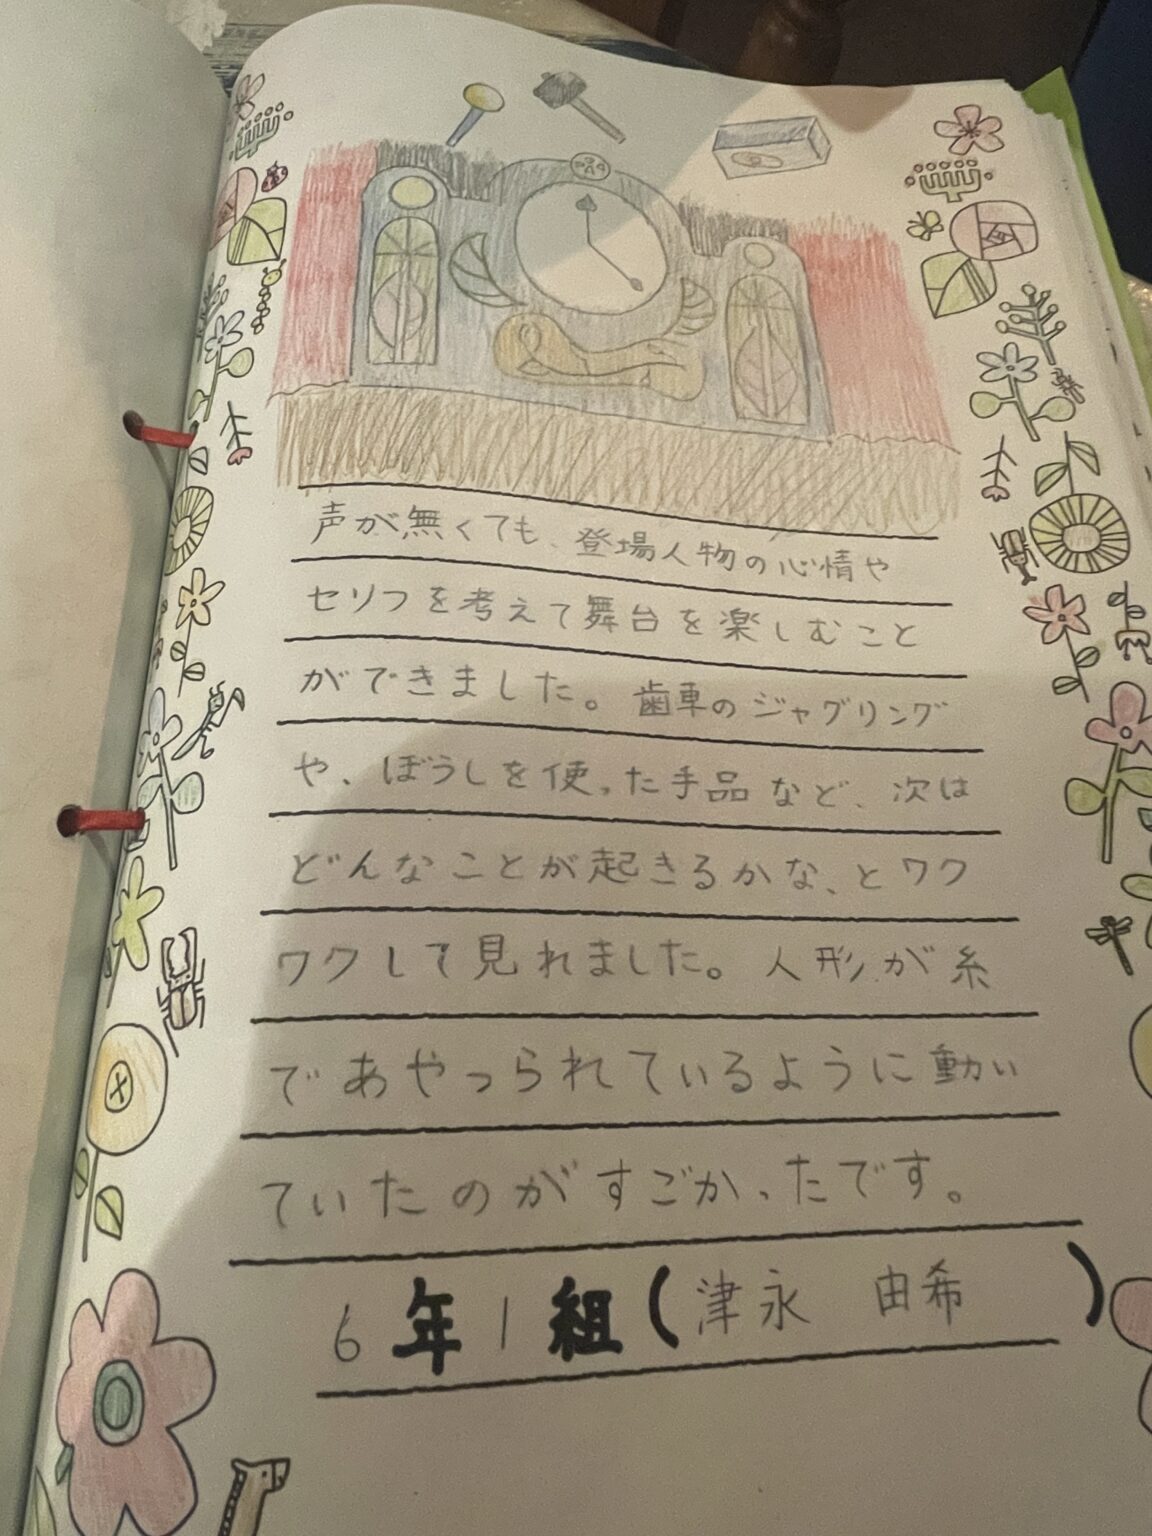 声が無くても、登場人物の心情や
セリフを考えて舞台を楽しむこと
ができました。歯車のジャグリング
や、ぼうしを使った手品など、次は
どんなことが起きるかな、とワク
ワクして見れました。人形が糸
であやつられているように動い
ていたのがすごかったです。
6年1組(津永 由希)